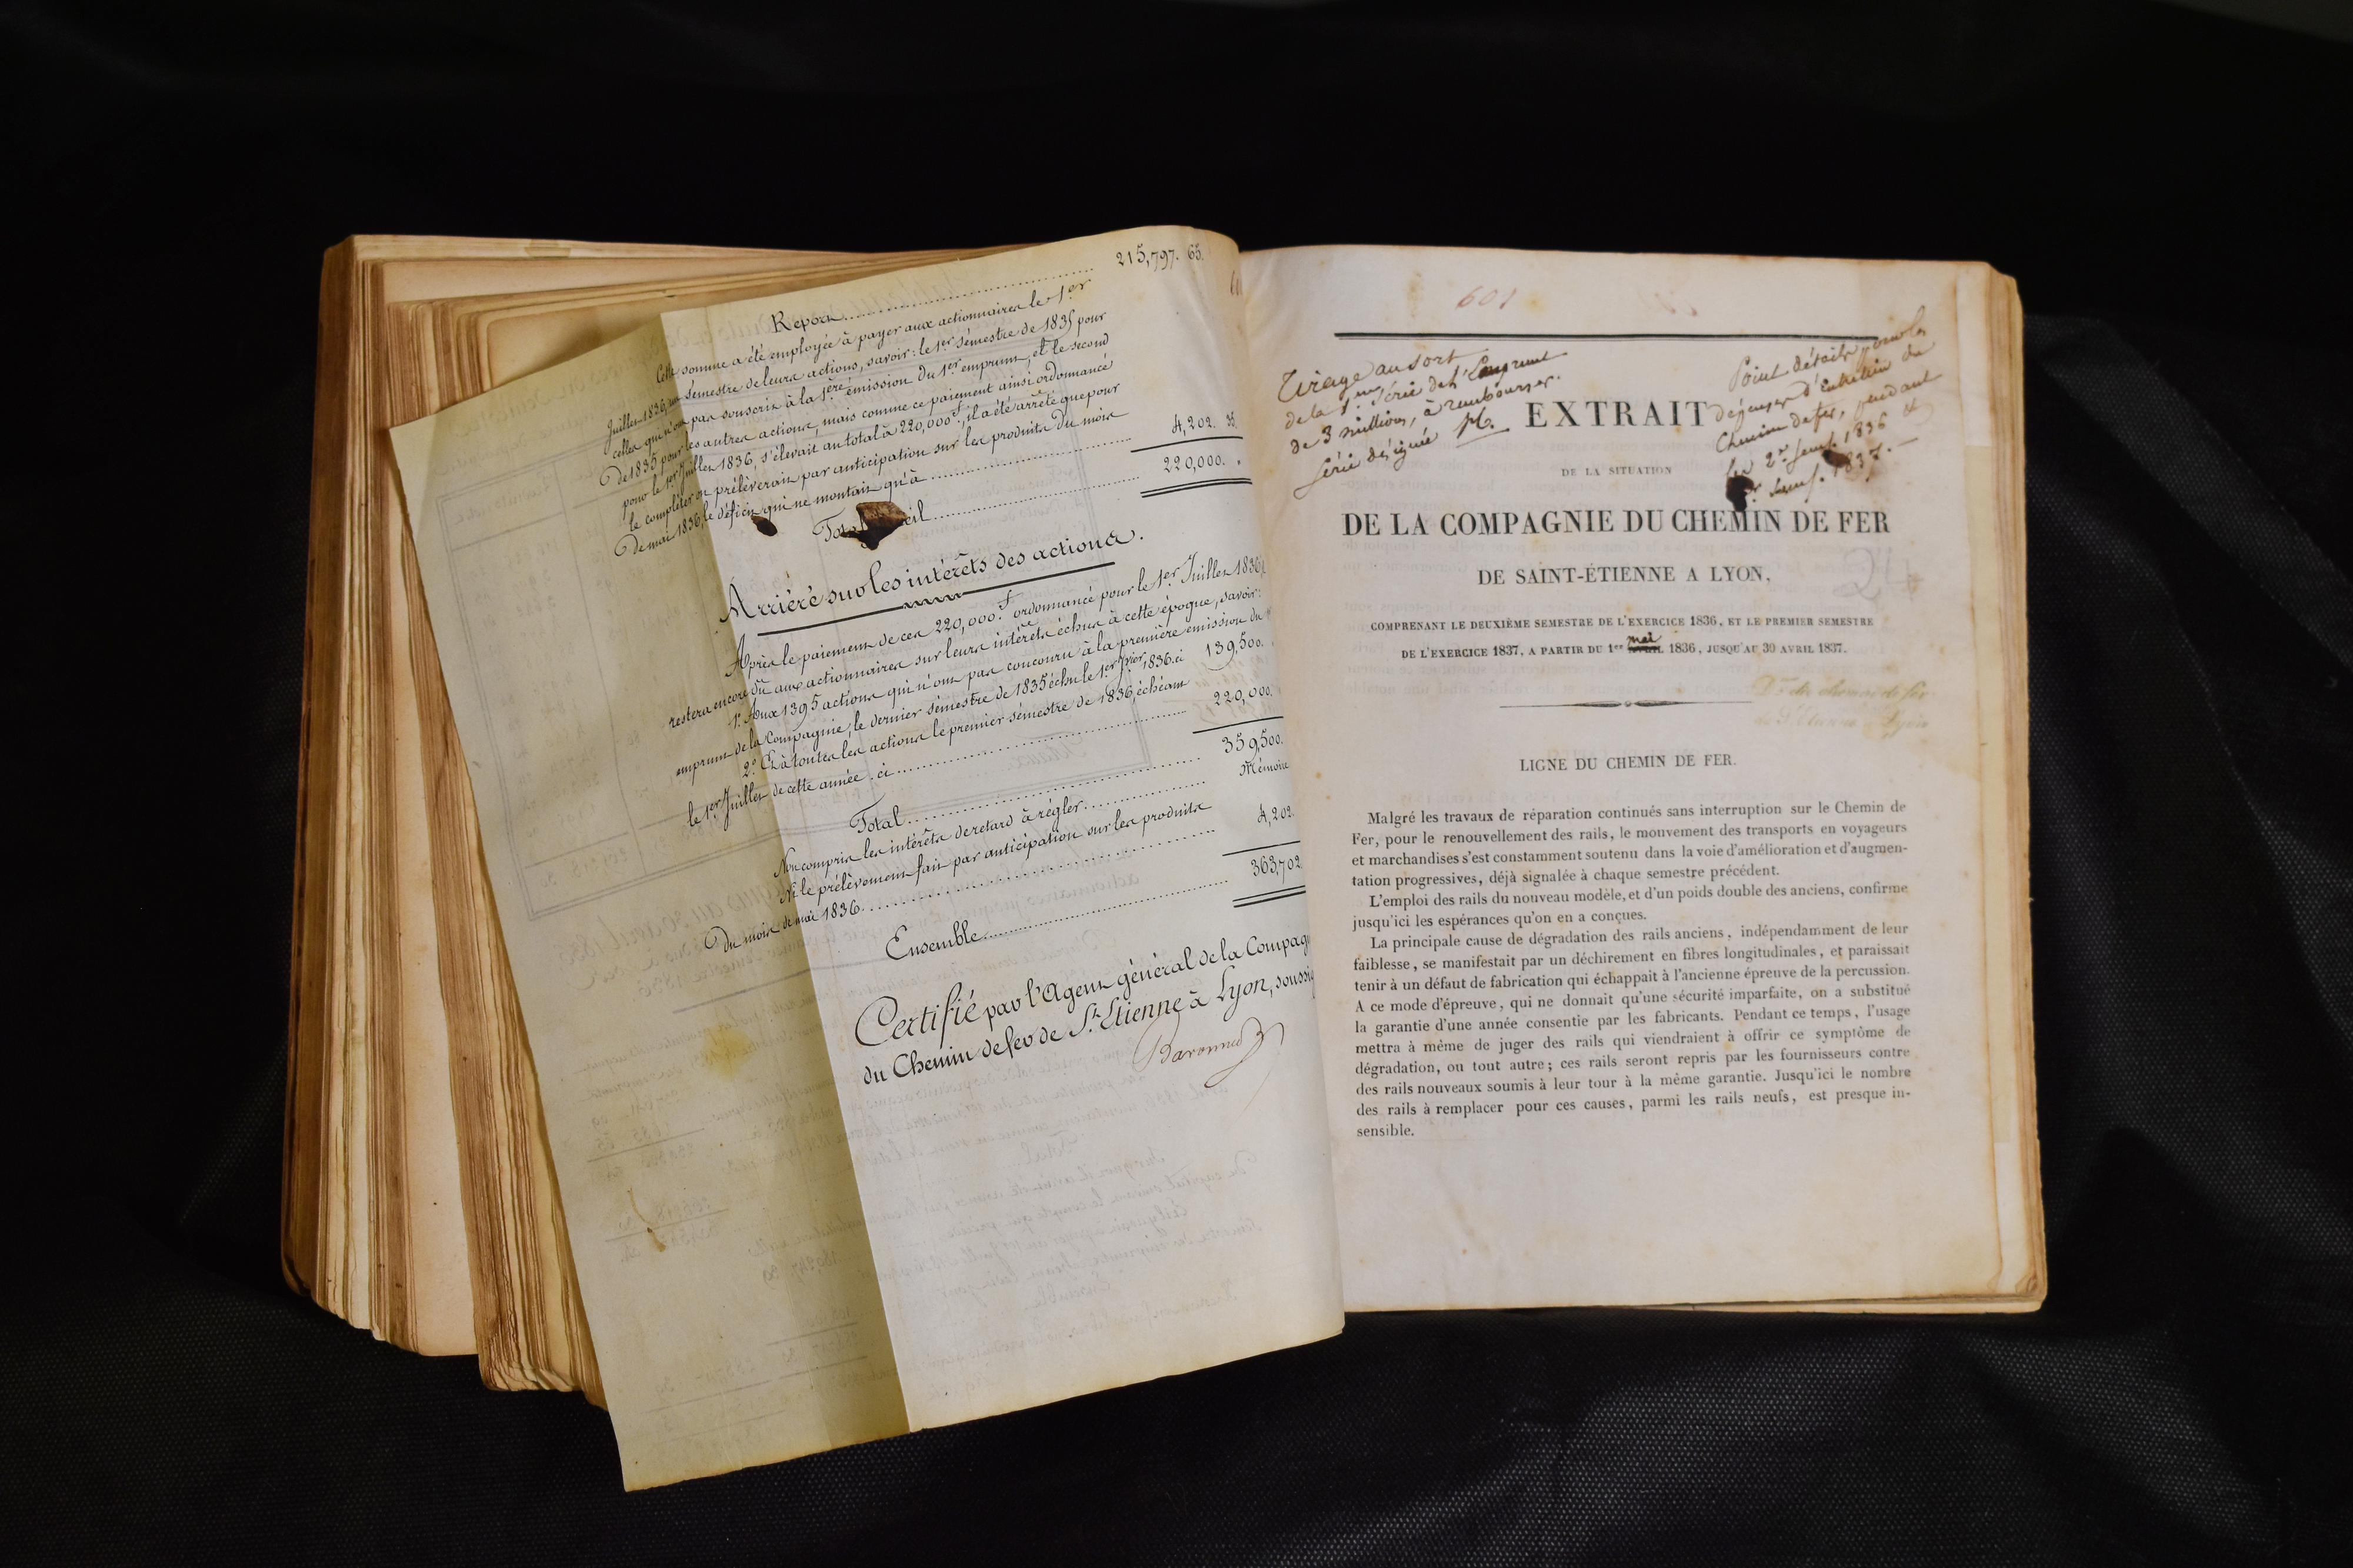 215,797. 65.
Report
Cette somme a été employée à payer aux actionnaires le 1er
Juillet 1836, un sémestre de leurs actions, savoir: le 1er sémestre de 1835 pour
celles qui n'ont pas souscrit à la 1ère émission du 1er emprunt, et le second
De 1835 pour les autres actions, mais comme ce paiement ainsi ordonnancé
pour le 1er Juillet 1836, s'élevait au total à 220,000f, il a été arrêté que pour
le compléter on prélèverait par anticipation sur les produits du mois
De mai 1836, le déficit qui ne montait qu'à 4,202. 35.
Total 220,000.
Arriéré sur les intérêts des actions.
Après le paiement de ces 220,000.f ordonnancé pour le 1er Juillet 1836,
restera encore dû aux actionnaires sur leurs intérêts échus à cette époque, savoir:
1°. Aux 1395 actions qui n'ont pas concouru à la première émission du
emprunt de la Compagnie, le dernier sémestre de 1835 échu le 1er Jvier 1836. ci 139,500.
2°. Et à toutes les actions le premier sémestre de 1836, échéant
le 1er Juillet de cette année. ci 220,000.
Total 359,500.
Non compris les intérêts de retard à régler Mémoire
Et le prélèvement fait par anticipation sur les produits
Du mois de mai 1836 4,202.
Ensemble 363,702
Certifié par l'Agent général de la Compag
du Chemin de fer de St. Etienne à Lyon, soussig
601
Tirage au sort
de la 1re Série de l'Emprunt
de 3 millions, à rembourser.
Série désignée
Point détails pour les
dépenses d'entretien du
Chemin de fer, pendant
les 2e. Sem. 1836 &
Sem. 1837.
EXTRAIT
DE LA SITUATION
DE LA COMPAGNIE DU CHEMIN DE FER
DE SAINT-ÉTIENNE A LYON,
COMPRENANT LE DEUXIÈME SEMESTRE DE L'EXERCICE 1836, ET LE PREMIER SEMESTRE
mai
DE L'EXERCICE 1837, A PARTIR DU 1er 1836, JUSQU'AU 30 AVRIL 1837.
chemin de fer
de St Etienne à Lyon
LIGNE DU CHEMIN DE FER.
Malgré les travaux de réparation continués sans interruption sur le Chemin de
Fer, pour le renouvellement des rails, le mouvement des transports en voyageurs
et marchandises s'est constamment soutenu dans la voie d'amélioration et d'augmen-
tation progressives, déjà signalée à chaque semestre précédent.
L'emploi des rails du nouveau modèle, et d'un poids double des anciens, confirme
jusqu'ici les espérances qu'on en a conçues.
La principale cause de dégradation des rails anciens, indépendamment de leur
faiblesse, se manifestait par un déchirement en fibres longitudinales, et paraissait
tenir à un défaut de fabrication qui échappait à l'ancienne épreuve de la percussion.
A ce mode d'épreuve, qui ne donnait qu'une sécurité imparfaite, on a substitué
la garantie d'une année consentie par les fabricants. Pendant ce temps, l'usage
mettra à même de juger des rails qui viendraient à offrir ce symptôme de
dégradation, ou tout autre; ces rails seront repris par les fournisseurs contre
des rails nouveaux soumis à leur tour à la même garantie. Jusqu'ici le nombre
des rails à remplacer pour ces causes, parmi les rails neufs, est presque in-
sensible.